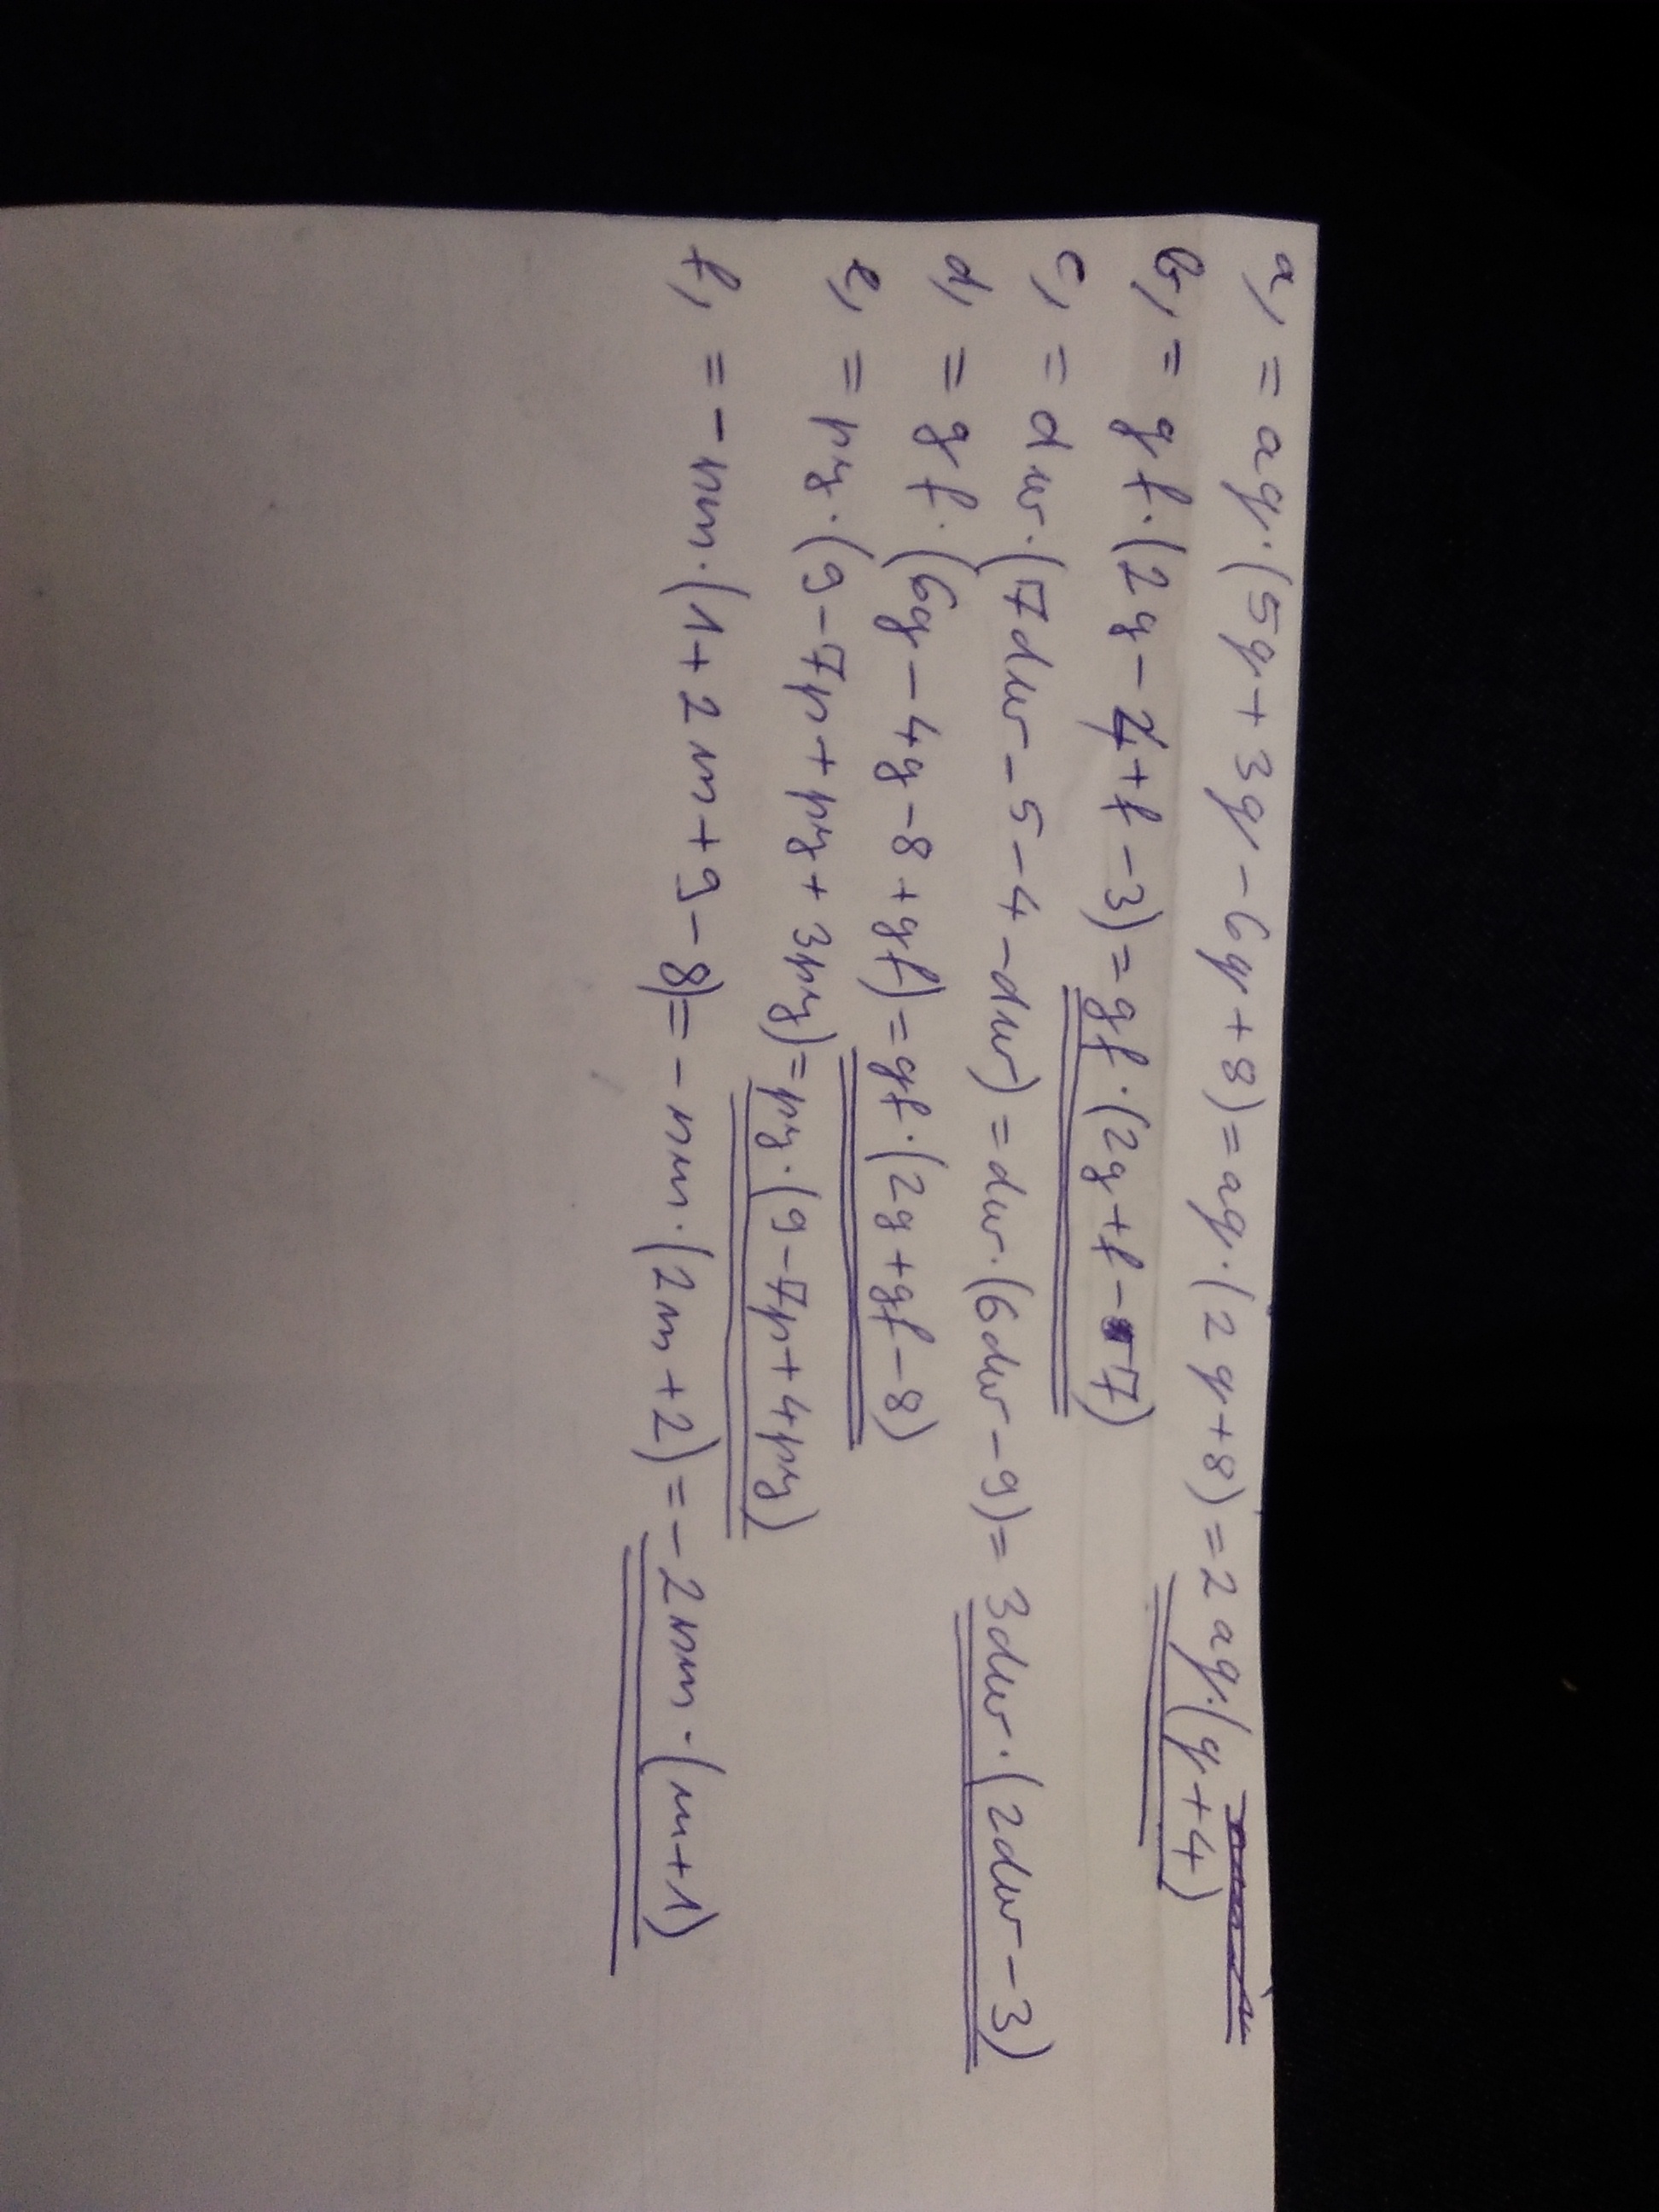 a, = aq·(5q+3q-6q+8)=aq·(2q+8)=2aq·(q+4)
b, = gf·(2g-4+f-3)=gf·(2g+f-7)
c, = dw·(7dw-5-4-dw)=dw·(6dw-9)=3dw·(2dw-3)
d, = gf·(6g-4g-8+gf)=gf·(2g+gf-8)
e, = py·(9-7p+py+3py)=py·(9-7p+4py)
f, = -nm·(1+2m+9-8)=-nm·(2m+2)=-2nm·(m+1)